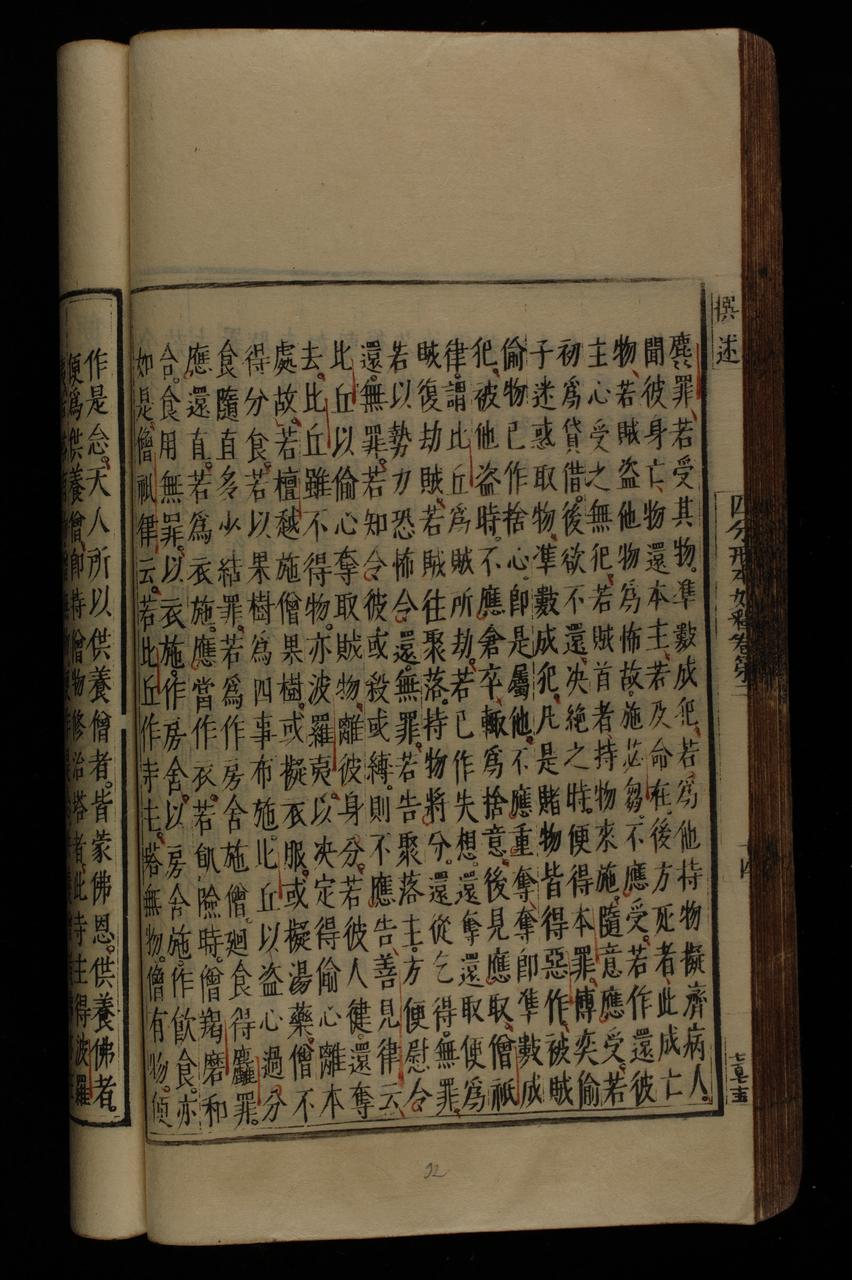 撰述
四分戒本如釋卷第二
麤罪。若受其物。準數成犯。若為他持物擬濟病人。
聞彼身亡。物還本主。若及命在。後方死者。此成亡
物。若賊盜他物。為怖故。施苾芻。不應受。若作還彼
主心受之無犯。若賊首者。持物來施。隨意應受。若
初為貸借。後欲不還。決絕之時。便得本罪。博奕偷
子迷惑取物。準數成犯。凡是賭物。皆得惡作。被賊
偷物。已作捨心。即是屬他。不應重奪。奪即準數成
犯。被他盜時。不應倉卒輒為捨意。後見應取。僧祇
律謂比丘為賊所劫。若已作失想。還奪還取。便為
賊復劫賊。若賊往聚落。持物將分。還從乞得無罪。
若以勢力恐怖令還。無罪。若告聚落主。方便慰令
還。無罪。若知令彼或殺或縛。則不應告。善見律云
比丘以偷心奪取賊物。離彼身分。若彼人健。還奪
去。比丘雖不得物。亦波羅夷。以決定得偷心離本
處故。若檀越施僧果樹。或擬衣服。或擬湯藥。僧不
得分食。若以果樹為四事布施。比丘以盜心過分
食。隨直多少結罪。若為作房舍施僧。迴食得麤罪。
應還直。若為衣施。應當作衣。若飢險時。僧羯磨和
合。食用無罪。以衣施。作房舍。以房舍施。作飲食。亦
如是。僧祇律云。若比丘作寺主。塔無物。僧有物。便
作是念。天人所以供養僧者。皆蒙佛恩。供養佛者。
便為供養僧。即持僧物修治塔者。此寺主得波羅